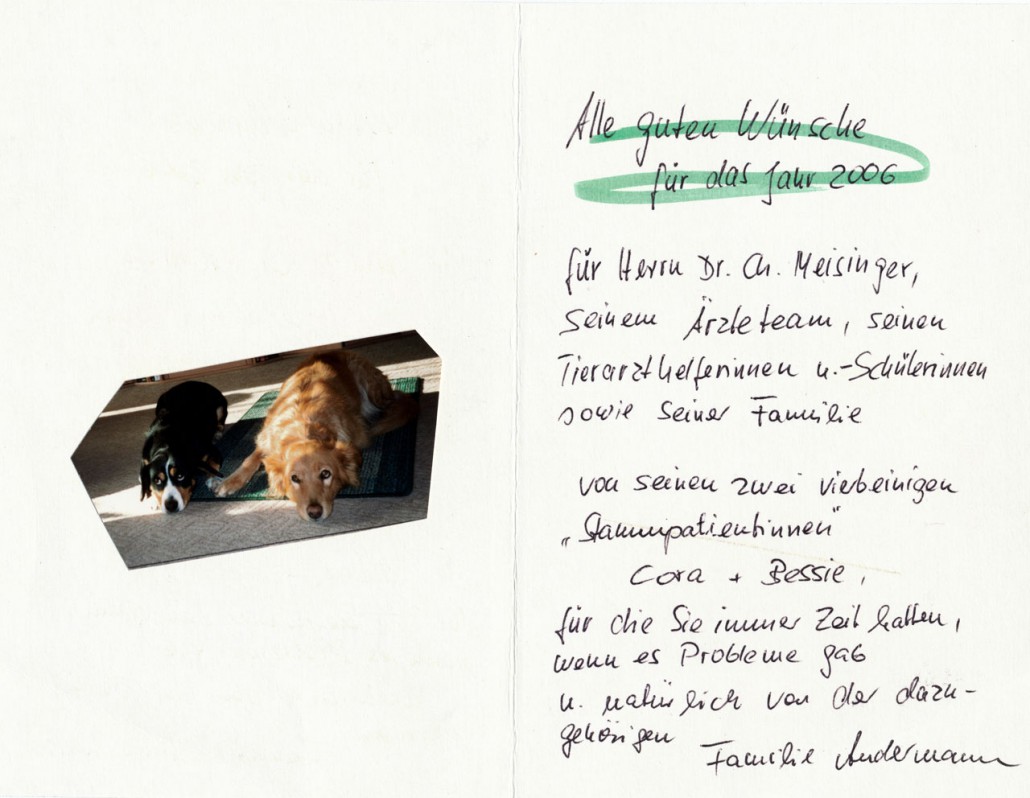 Alle guten Wünsche
für das Jahr 2006
für Herrn Dr. Ch. Meisinger,
seinem Ärzteteam, seinen
Tierarzthelferinnen u.-Schülerinnen
sowie seiner Familie
von seinen zwei vierbeinigen
„Stammpatientinnen"
Cora + Bessie,
für die Sie immer Zeit hatten,
wenn es Probleme gab
u. natürlich von der dazu-
gehörigen
Familie Andermann